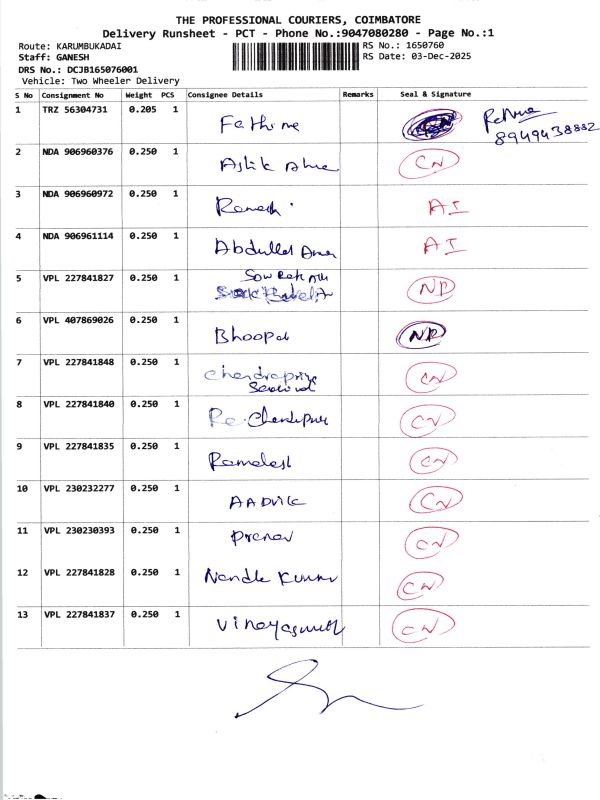 THE PROFESSIONAL COURIERS, COIMBATORE
Delivery Runsheet - PCT - Phone No.:9047080280 - Page No.:1
Route: KARUMBUKADAI
Staff: GANESH
DRS No.: DCJB165076001
Vehicle: Two Wheeler Delivery
RS No.: 1650760
RS Date: 03-Dec-2025
S No Consignment No Weight PCS Consignee Details Remarks Seal & Signature
1 TRZ 56304731 0.205 1 Fathime
8949438882
2 NDA 906960376 0.250 1 CN
3 NDA 906960972 0.250 1 Ramesh AI
4 NDA 906961114 0.250 1 Abdullah AI
5 VPL 227841827 0.250 1 NR
6 VPL 407869026 0.250 1 Bhoopal NR
7 VPL 227841848 0.250 1 Chandrapriya CN
8 VPL 227841840 0.250 1 CN
9 VPL 227841835 0.250 1 CN
10 VPL 230232277 0.250 1 AADVIK CN
11 VPL 230230393 0.250 1 Pranav CN
12 VPL 227841828 0.250 1 Nandha Kumar CN
13 VPL 227841837 0.250 1 CN